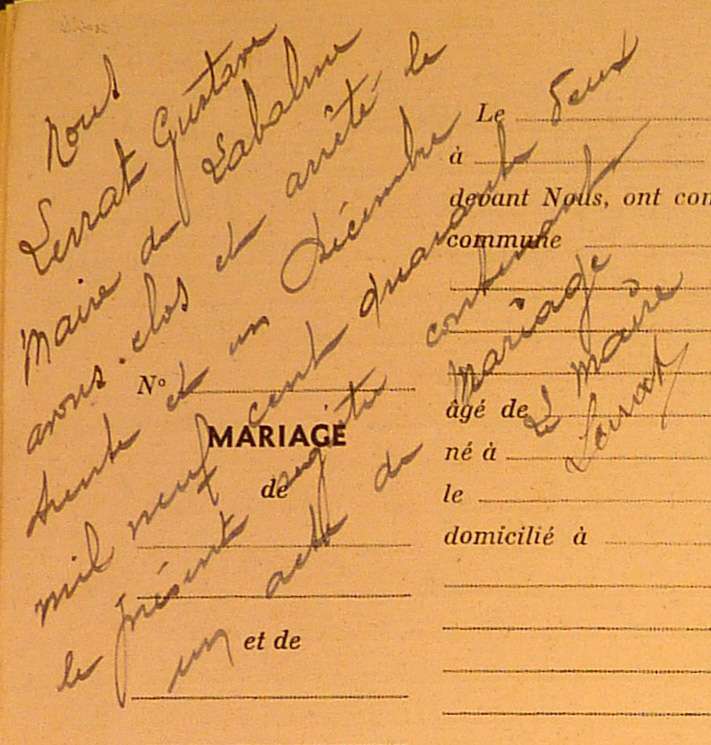 Nous
Gustave
Maire de Labalme
avons clos et arrêté le
trente et un Décembre
mil neuf cent quarante deux
le présent registre contenant
un acte de Mariage
Le Maire
N°
MARIAGE
de
et de
Le
à
devant Nous, ont con
commune
âgé de
né à
le
domicilié à